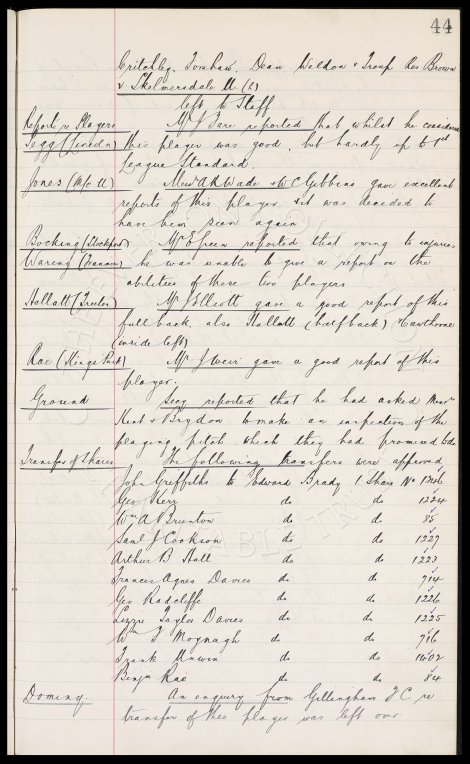 44
Critchley, Forshaw, Dean Weldon & Troup Res Brown
v Skelmersdale U (L)
left to Staff
Reports re Players Mr J Fare reported that whilst he considered
Legg (Lincoln) this player was good, but hardly up to 1st
League Standard.
Jones (M/c U) Messrs AH Wade & WC Gibbins gave excellent
reports of this player & it was decided to
have been seen again
Bocking (Stockport) Mr E Green reported that owing to injuries
Waring (Tranmere) he was unable to give a report on the
abilities of these two players
Hallatt (Frecton) Mr J Elliott gave a good report of this
full back, also Hallatt (half back) Hawthorne
(inside left)
Rae (Kings Park) Mr J Weir gave a good report of this
player.
Ground Secy reported that he had asked Messrs
Kent & Brydon to make an inspection of the
playing pitch which they had promised to do
Transfer of Shares The following transfers were approved
John Griffiths to Edward Brady 1 Share No 1206
Geo Kerr do do 1224
Wm A Brunton do do 85
Saml J Cookson do do 1227
Arthur B Hall do do 1223
Frances Agnes Davies do do 914
Geo Radcliffe do do 1226
Lizzie Taylor Davies do do 1225
Wm F Moynagh do do 916
Frank Unwin do do 1602
Benjn Rae do do 84
Dominy. An enquiry from Gillingham F C re
transfer of this player was left over